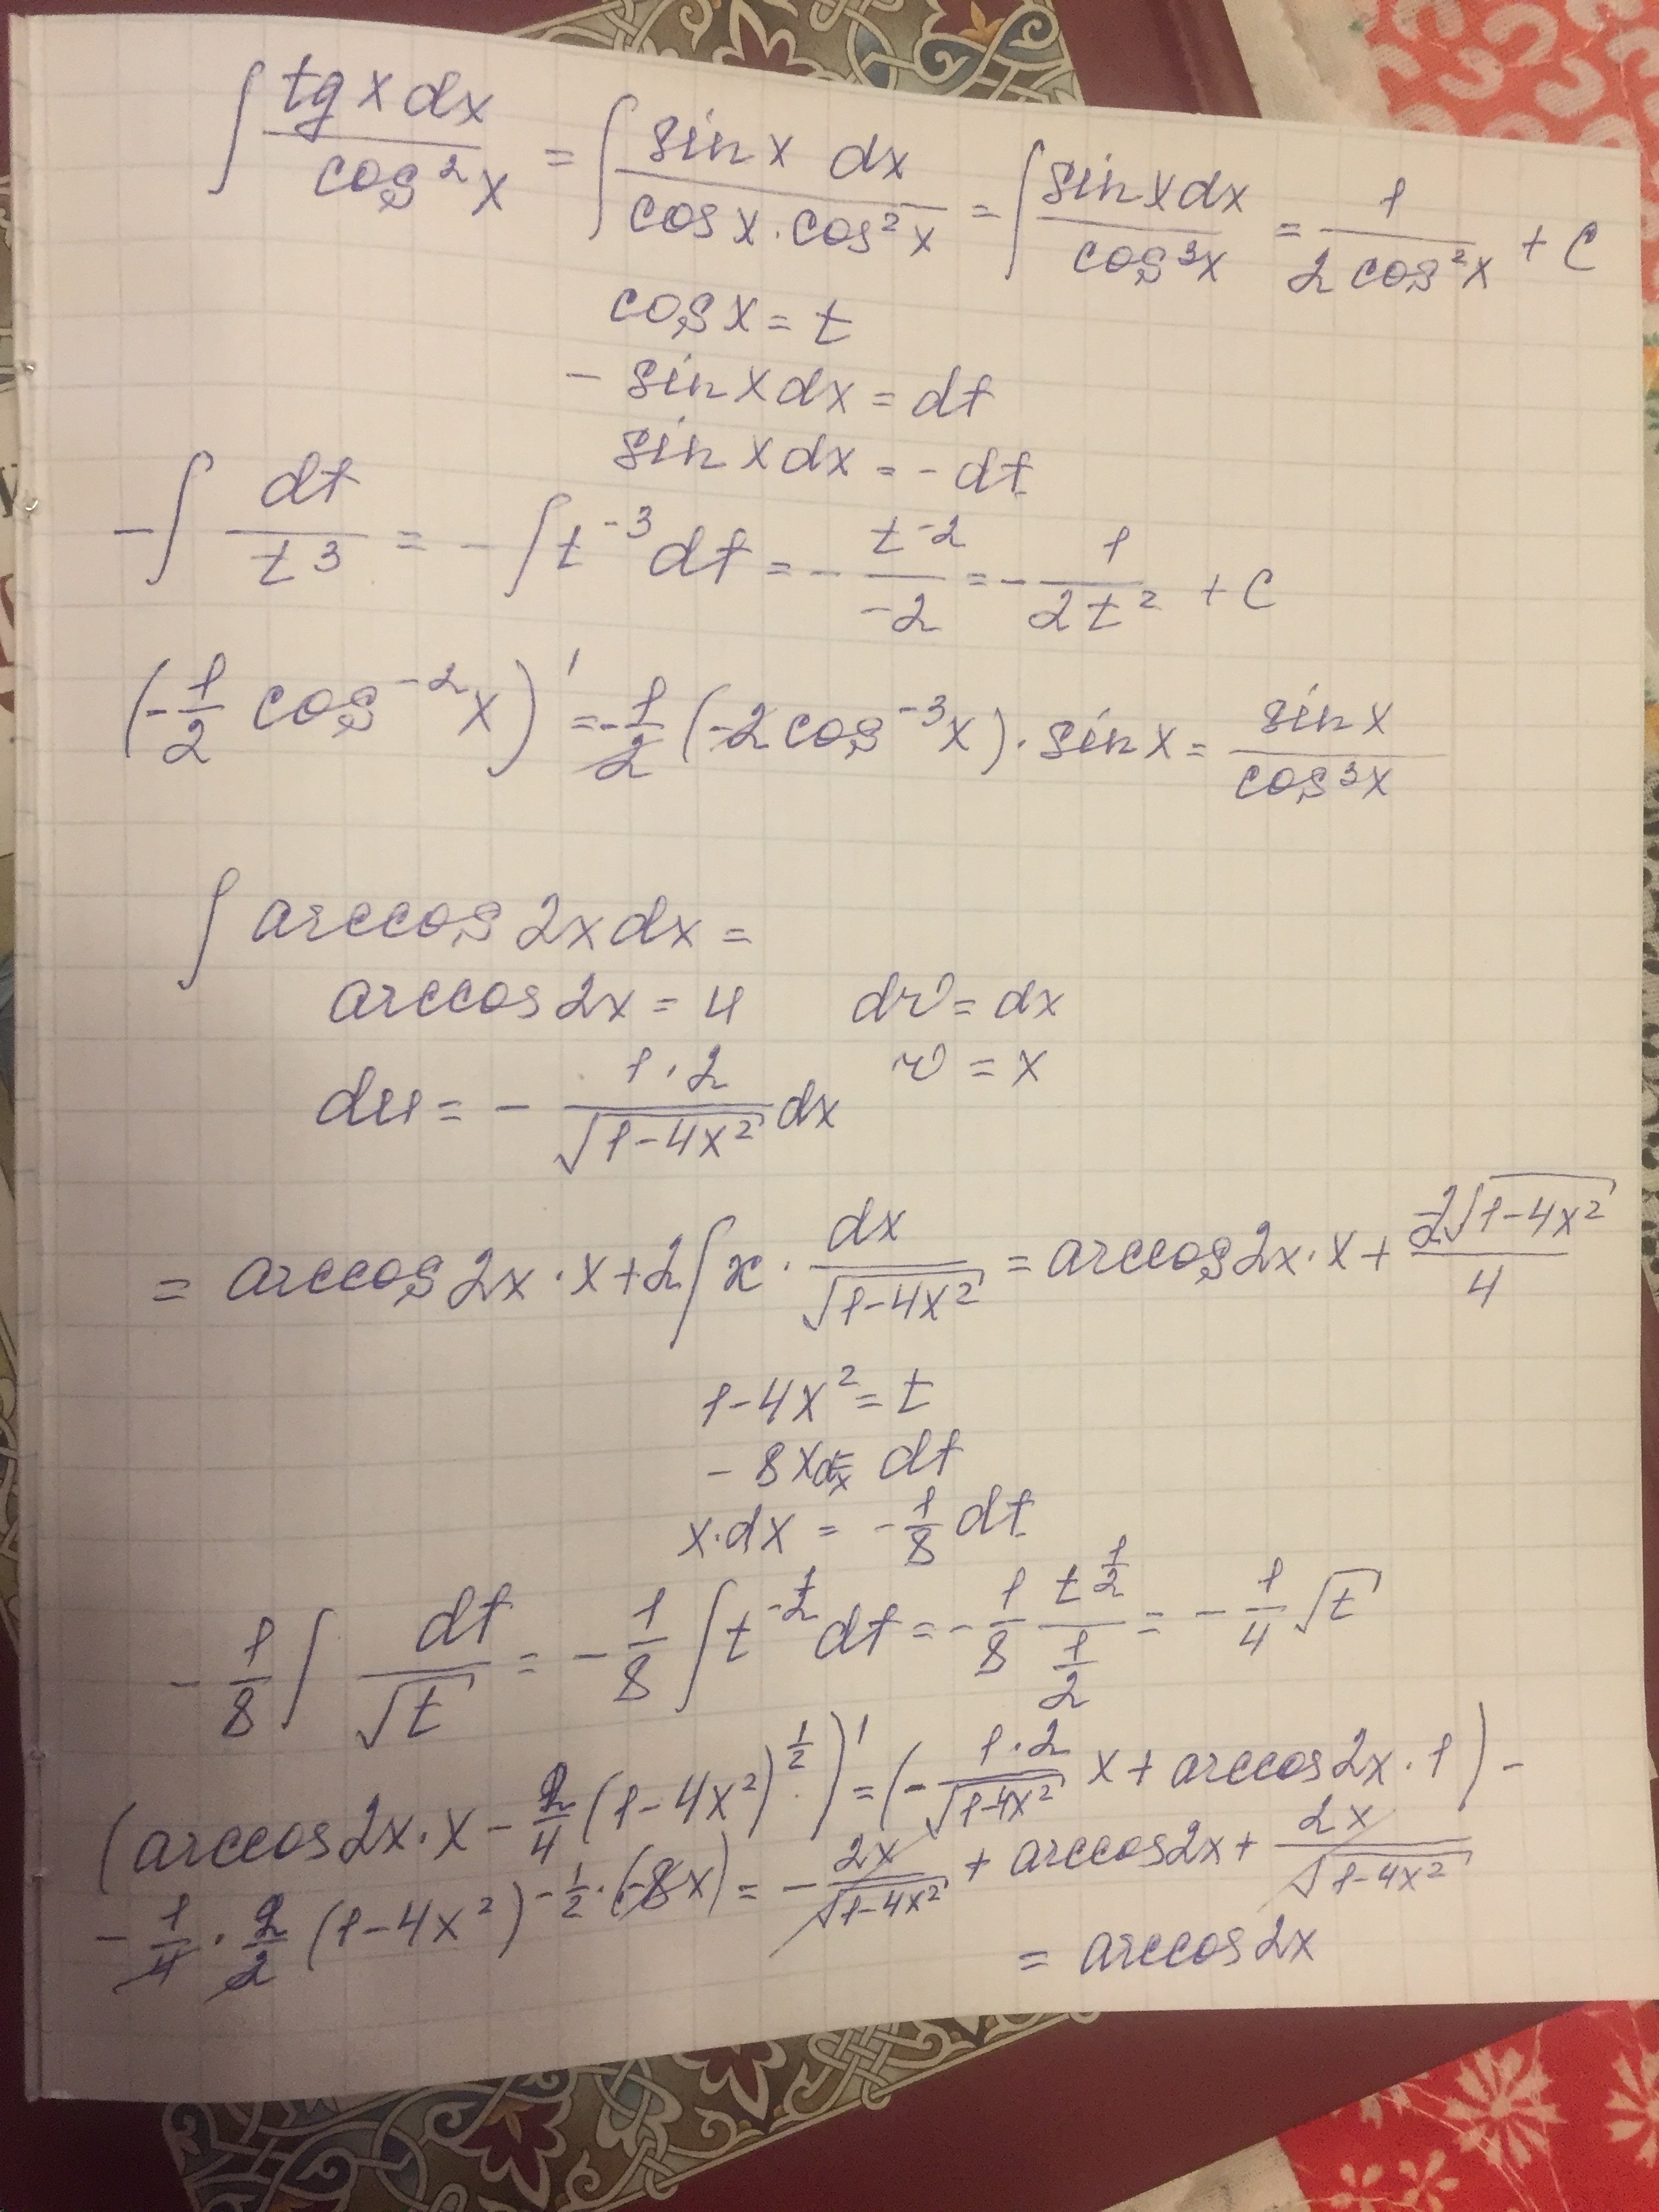 ∫ tg x dx / cos² x = ∫ sin x dx / cos x · cos² x = ∫ sin x dx / cos³ x = 1 / 2 cos² x + C
cos x = t
- sin x dx = dt
sin x dx = - dt
- ∫ dt / t³ = - ∫ t⁻³ dt = - t⁻² / -2 = - 1 / 2t² + C
(- 1/2 cos⁻² x)' = - 1/2 (-2 cos⁻³ x) · sin x = sin x / cos³ x
∫ arccos 2x dx =
arccos 2x = u dv = dx
du = - 1·2 / √(1-4x²) dx v = x
= arccos 2x · x + 2 ∫ x · dx / √(1-4x²) = arccos 2x · x + 2√(1-4x²) / 4
1-4x² = t
- 8x dx = dt
x·dx = - 1/8 dt
- 1/8 ∫ dt / √t = - 1/8 ∫ t^(-1/2) dt = - 1/8 t^(1/2) / (1/2) = - 1/4 √t
(arccos 2x · x - 2/4 (1-4x²)^(1/2))' = (- 1·2 / √(1-4x²) x + arccos 2x · 1) -
- 1/4 · 2/2 (1-4x²)^(-1/2) · (-8x) = - 2x / √(1-4x²) + arccos 2x + 2x / √(1-4x²)
= arccos 2x